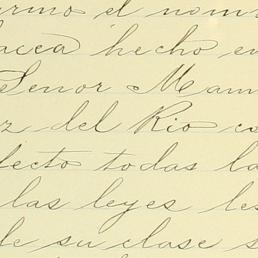 irmo el nom
acca hecho en
Señor Man
z del Rio co
fecto todas la
las leyes les
de su clase s